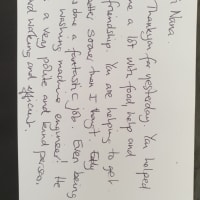 i Nana
Thankyou for yesterday. You helped
me a lot with food, help and
friendship. You are helping to get
better sooner then I thought. Eddy
done a fantastic job. Even being
washing machine engineer! He
a very polite and kind person.
ard working and efficient.